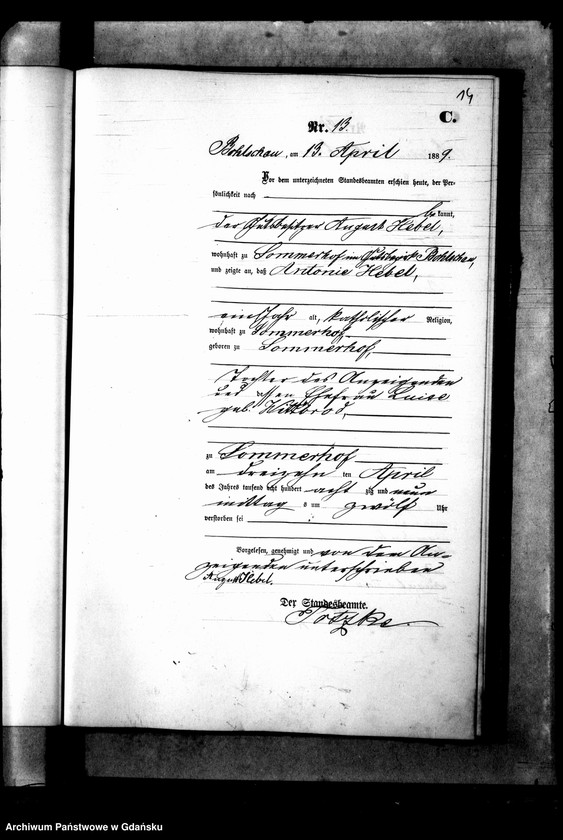 14
C.
Nr. 13.
Bohlschau, am 13. April 1889.
Vor dem unterzeichneten Standesbeamten erschien heute, der Per-
sönlichkeit nach
be kannt,
der Gutsbesitzer August Hebel,
wohnhaft zu Sommerhof im Gutsbezirk Bohlschau,
und zeigte an, daß Antonie Hebel,
ein Jahr alt, katholischer Religion,
wohnhaft zu Sommerhof
geboren zu Sommerhof,
Tochter des Anzeigenden
und dessen Ehefrau Luise
geb.
zu Sommerhof
am dreizehn ten April
des Jahres tausend acht hundert acht zig und neun
mittag s um zwölf Uhr
verstorben sei
Vorgelesen, genehmigt und von dem An-
zeigenden unterschrieben
August Hebel.
Der Standesbeamte.
Potzke
Archiwum Państwowe w Gdańsku